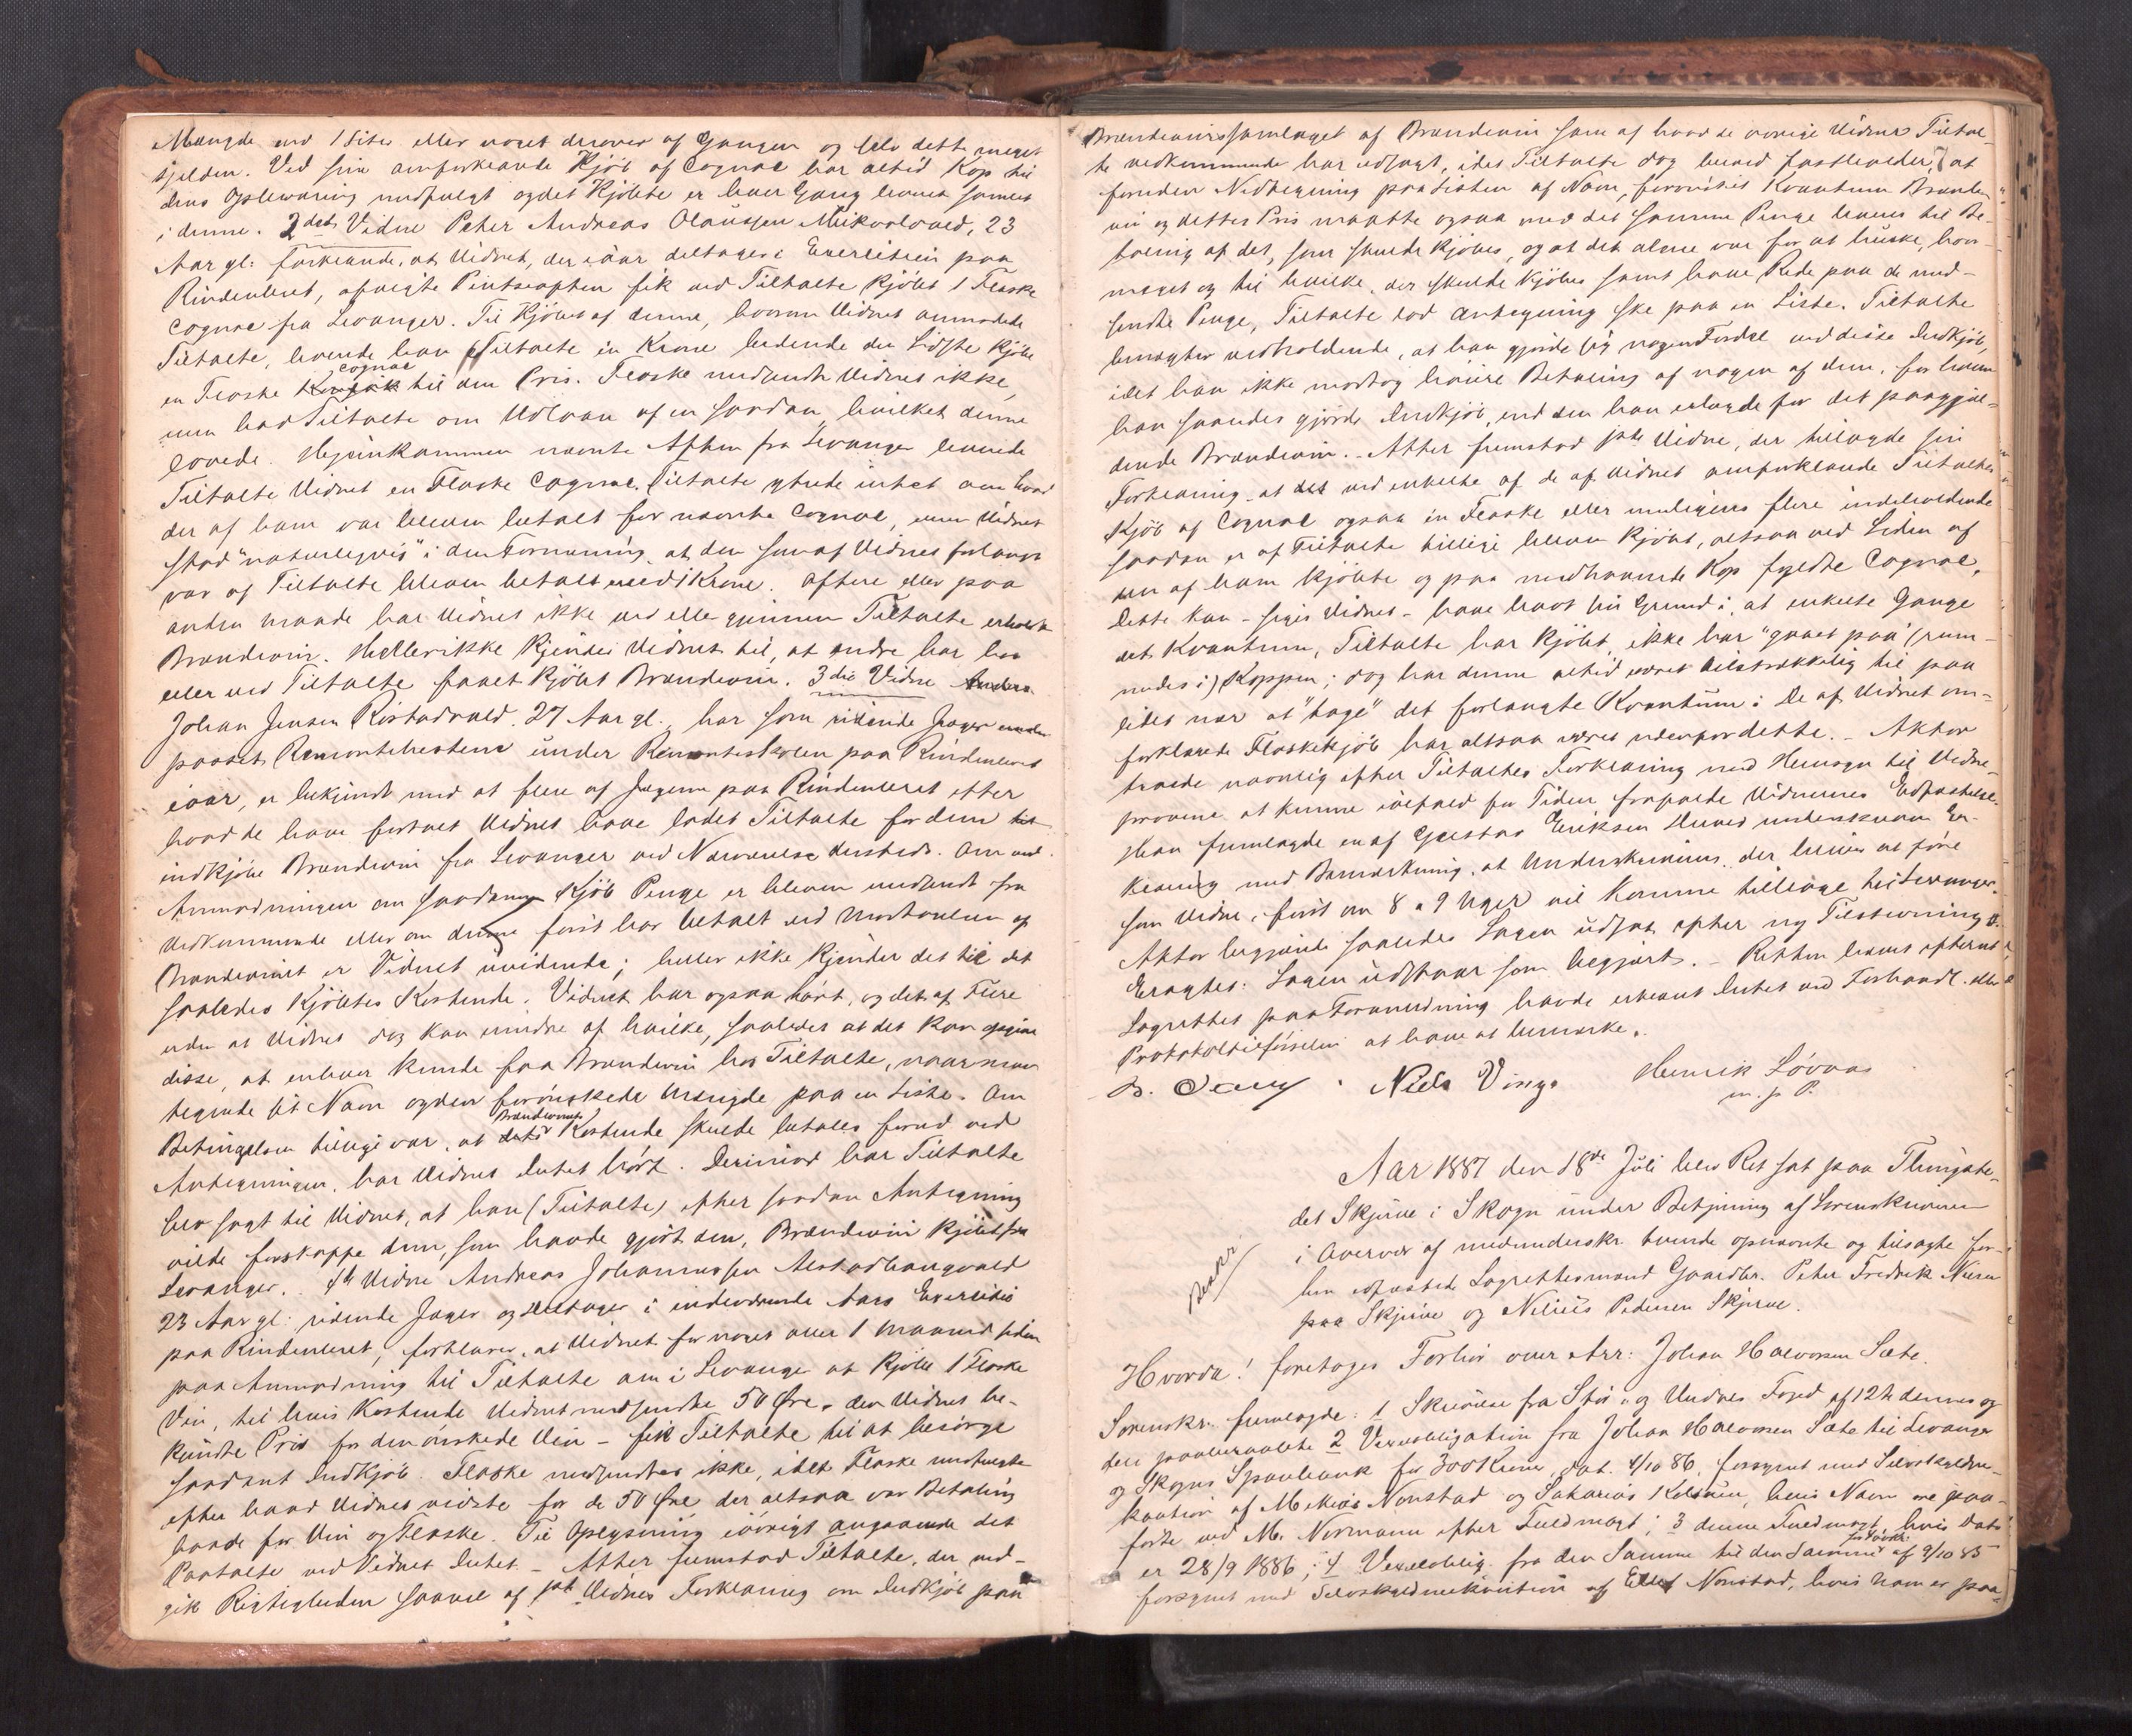 Mængde end 1 Liter eller noget derover af Gangen og selv dette meget
sjelden. Ved sin omforklarede Kjøb af Cognac har altid Kop til
dens Opbevaring medfulgt og det Kjøbte er hver Gang leveret samlet
i denne. 2det Vidne Peter Andreas Olaussen Mikvoldvald, 23
Aar gl: forklarede, at Vidnet, der iaar deltager i Exercitien paa
Rindenleret, afvigte Pintseaften fik ved Tiltalte Kjøbt 1 Flaske
Cognac fra Levanger. Til Kjøbet af denne, hvorom Vidnet anmodede
Tiltalte, leverede han Tiltalte en Krone bedende ham Kjøbe
en Flaske Cognac til den Pris. Flaske medsendte Vidnet ikke,
men bad Tiltalte om Udlaan af en saadan, hvilket denne
lovede. Hjemkommen nævnte Aften fra Levanger leverede
Tiltalte Vidnet en Flaske Cognac. Tiltalte ytrede intet om hvad
der af ham var bleven betalt for nævnte Cognac, men Vidnet
stod "naturligvis" i den Formening, at den som af Vidnet forlangt
var af Tiltalte bleven betalt med 1 Krone. Oftere eller paa
anden Maade har Vidnet ikke ved eller gjennem Tiltalte erholdt
Brændevin. Heller ikke Kjender Vidnet til, at andre har hos
eller ved Tiltalte faaet Kjøbt Brændevin. 3die Vidne
Johan Jensen Ristadvald, 27 Aar gl., har som ridende Jæger
passet Remontehestene under Remonteskolen paa Rindenleret
iaar, er bekjendt med at flere af Jægerne paa Rindenleret efter
hvad de have fortalt Vidnet have ladet Tiltalte for dem
indkjøbe Brændevin fra Levanger ved Nærværelse dersteds. Om ved
Anmodningen om saadanne Kjøb Penge er bleven medsendt fra
Vedkommende eller om denne først har betalt ved Modtagelsen af
Brændevinet er Vidnet uvidende; heller ikke Kjender det til det
saaledes Kjøbtes Kostende. Vidnet har ogsaa hørt, og det af Flere
uden at Vidnet dog kan erindre af hvilke, saaledes at det kan opgive
disse, at enhver kunde faa Brændevin hos Tiltalte, naar man
tegnede sit Navn og den forønskede Mængde paa en Liste. Om
Betingelsen tillige var, at Brændevinets Kostende skulde betales forud ved
Antegningen, har Vidnet Intet hørt. Derimod har Tiltalte
selv sagt til Vidnet, at han (Tiltalte) efter saadan Antegning
vilde forskaffe dem, som havde gjort den, Brændevin Kjøbt fra
Levanger. 4de Vidne Andreas Johannessen Alstadhaugvald
23 Aar gl: ridende Jæger og Deltager i indeværende Aars Exercitie
paa Rindenleret, forklarer, at Vidnet for noget over 1 Maaned siden
paa Anmodning til Tiltalte om i Levanger at Kjøbe 1 Flaske
Vin, til hvis Kostende Vidnet medsendte 50 Øre, den Vidnet be-
kjendte Pris for den ønskede Vin – fik Tiltalte til at besørge
saadant Indkjøb. Flaske medsendtes ikke, idet Flaske medfulgte
efter hvad Vidnet vidste for de 50 Øre der altsaa var Betaling
baade for Vin og Flaske. Til Oplysning iøvrigt angaaende det
Paatalte ved Vidnet Intet. – Atter fremstod Tiltalte, der ved-
gik Rigtigheden saavel af 1ste Vidnes Forklaring om Indkjøb paa
Brændevinssamlaget af Brændevin som af hvad de øvrige Vidner Tiltal-
te vedkommende har udsagt, idet Tiltalte dog herved fastholder, at
foruden Nedtegning paa Listen af Navn, forønsket Kvantum Brænde-
vin og dettes Pris maatte ogsaa med det samme Penge leveres til Be-
taling af det, som skulde kjøbes, og at det alene var for at huske, hvor-
meget og til hvilke, der skulde kjøbes samt have Rede paa de med-
sendte Penge, Tiltalte lod Antegning ske paa en Liste. Tiltalte
benægter vedholdende, at han gjorde sig nogen Fordel ved disse Indkjøb,
idet han ikke modtog høiere Betaling af nogen af dem, for hvem
han saaledes gjorde Indkjøb, end den han erlagde for det paagjæl-
dende Brændevin. – Atter fremstod 1ste Vidne, der tilføiede sin
Forklaring, at ved enkelte af de af Vidnet omforklarede Tiltaltes
Kjøb af Cognac ogsaa en Flaske eller muligens flere indeholdende
saadan er af Tiltalte tillige bleven Kjøbt, altsaa ved Siden af
den af ham kjøbte og paa medhavende Kop fyldte Cognac.
Dette kan – siger Vidnet – have havt sin Grund i, at enkelte Gange
det Kvantum, Tiltalte har Kjøbt, ikke har "gaaet paa" (rum-
medes i) Koppen; dog har denne altid været tilstrækkelig til paa
lidet nær at "tage" det forlangte Kvantum. De af Vidnet om-
forklarede Flaskekjøb har altsaa været udenfor dette. – Aktor
troede navnlig efter Tiltaltes Forklaring med Hensyn til Vidne-
provene at kunne ialfald for Tiden frafalde Vidnernes Edfæstelse.
Han fremlagde en af Gustav Eriksen underskreven Er-
klæring med Bemærkning, at Underskriveren, der bliver at føre
som Vidne, først om 8 a 9 Uger vil komme tilbage til Levanger.
Aktor begjærede saaledes Sagen udsat efter ny Tilstevning
Eragtes: Sagen udstaar som begjært. – Retten hævet efterat
Lagrettet paa Foranledning havde erklæret Intet ved Forhandl. eller
Protokoltilførselen at have at bemærke.
Niels Vinge Henrik Løvaas
m. p. P.
Aar 1887 den 18de Juli blev Ret sat paa Thingste-
det Skjerve i Skogn under Betjening af Sorenskriveren
i Overvær af medunderskr. tvende opnævnte og tilsagte for-
hen edfæstede Lagrettesmænd Gaardbr. Peter Fredrik
paa Skjerve og Nilius Pedersen Skjerve.
Hvorda! foretoges Forhør over Arr: Johan Halvorsen Sæte.
Sorenskr. fremlagde: 1 Skrivelse fra Stør- og Værdal Foged af 12te dennes og
den paaberaabte 2 Vexelobligation fra Johan Halvorsen Sæte til Levanger
og Skogns Sparebank for 300 Kroner, dat. 4/10 86, forsynet med Selvskyldner-
kaution af Mekias Nonstad og Sakarias Kolstrøm, hvis Navn ere paa-
førte ved M. Normann efter Fuldmagt; 3 denne Fuldmagt, hvis Dato
er 28/9 1886; 4 Vexeloblig. fra den Samme til den Samme af 9/10 85
forsynet med Selvskyldnerkaution af Ellef Nonstad, hvis Navn er paa-